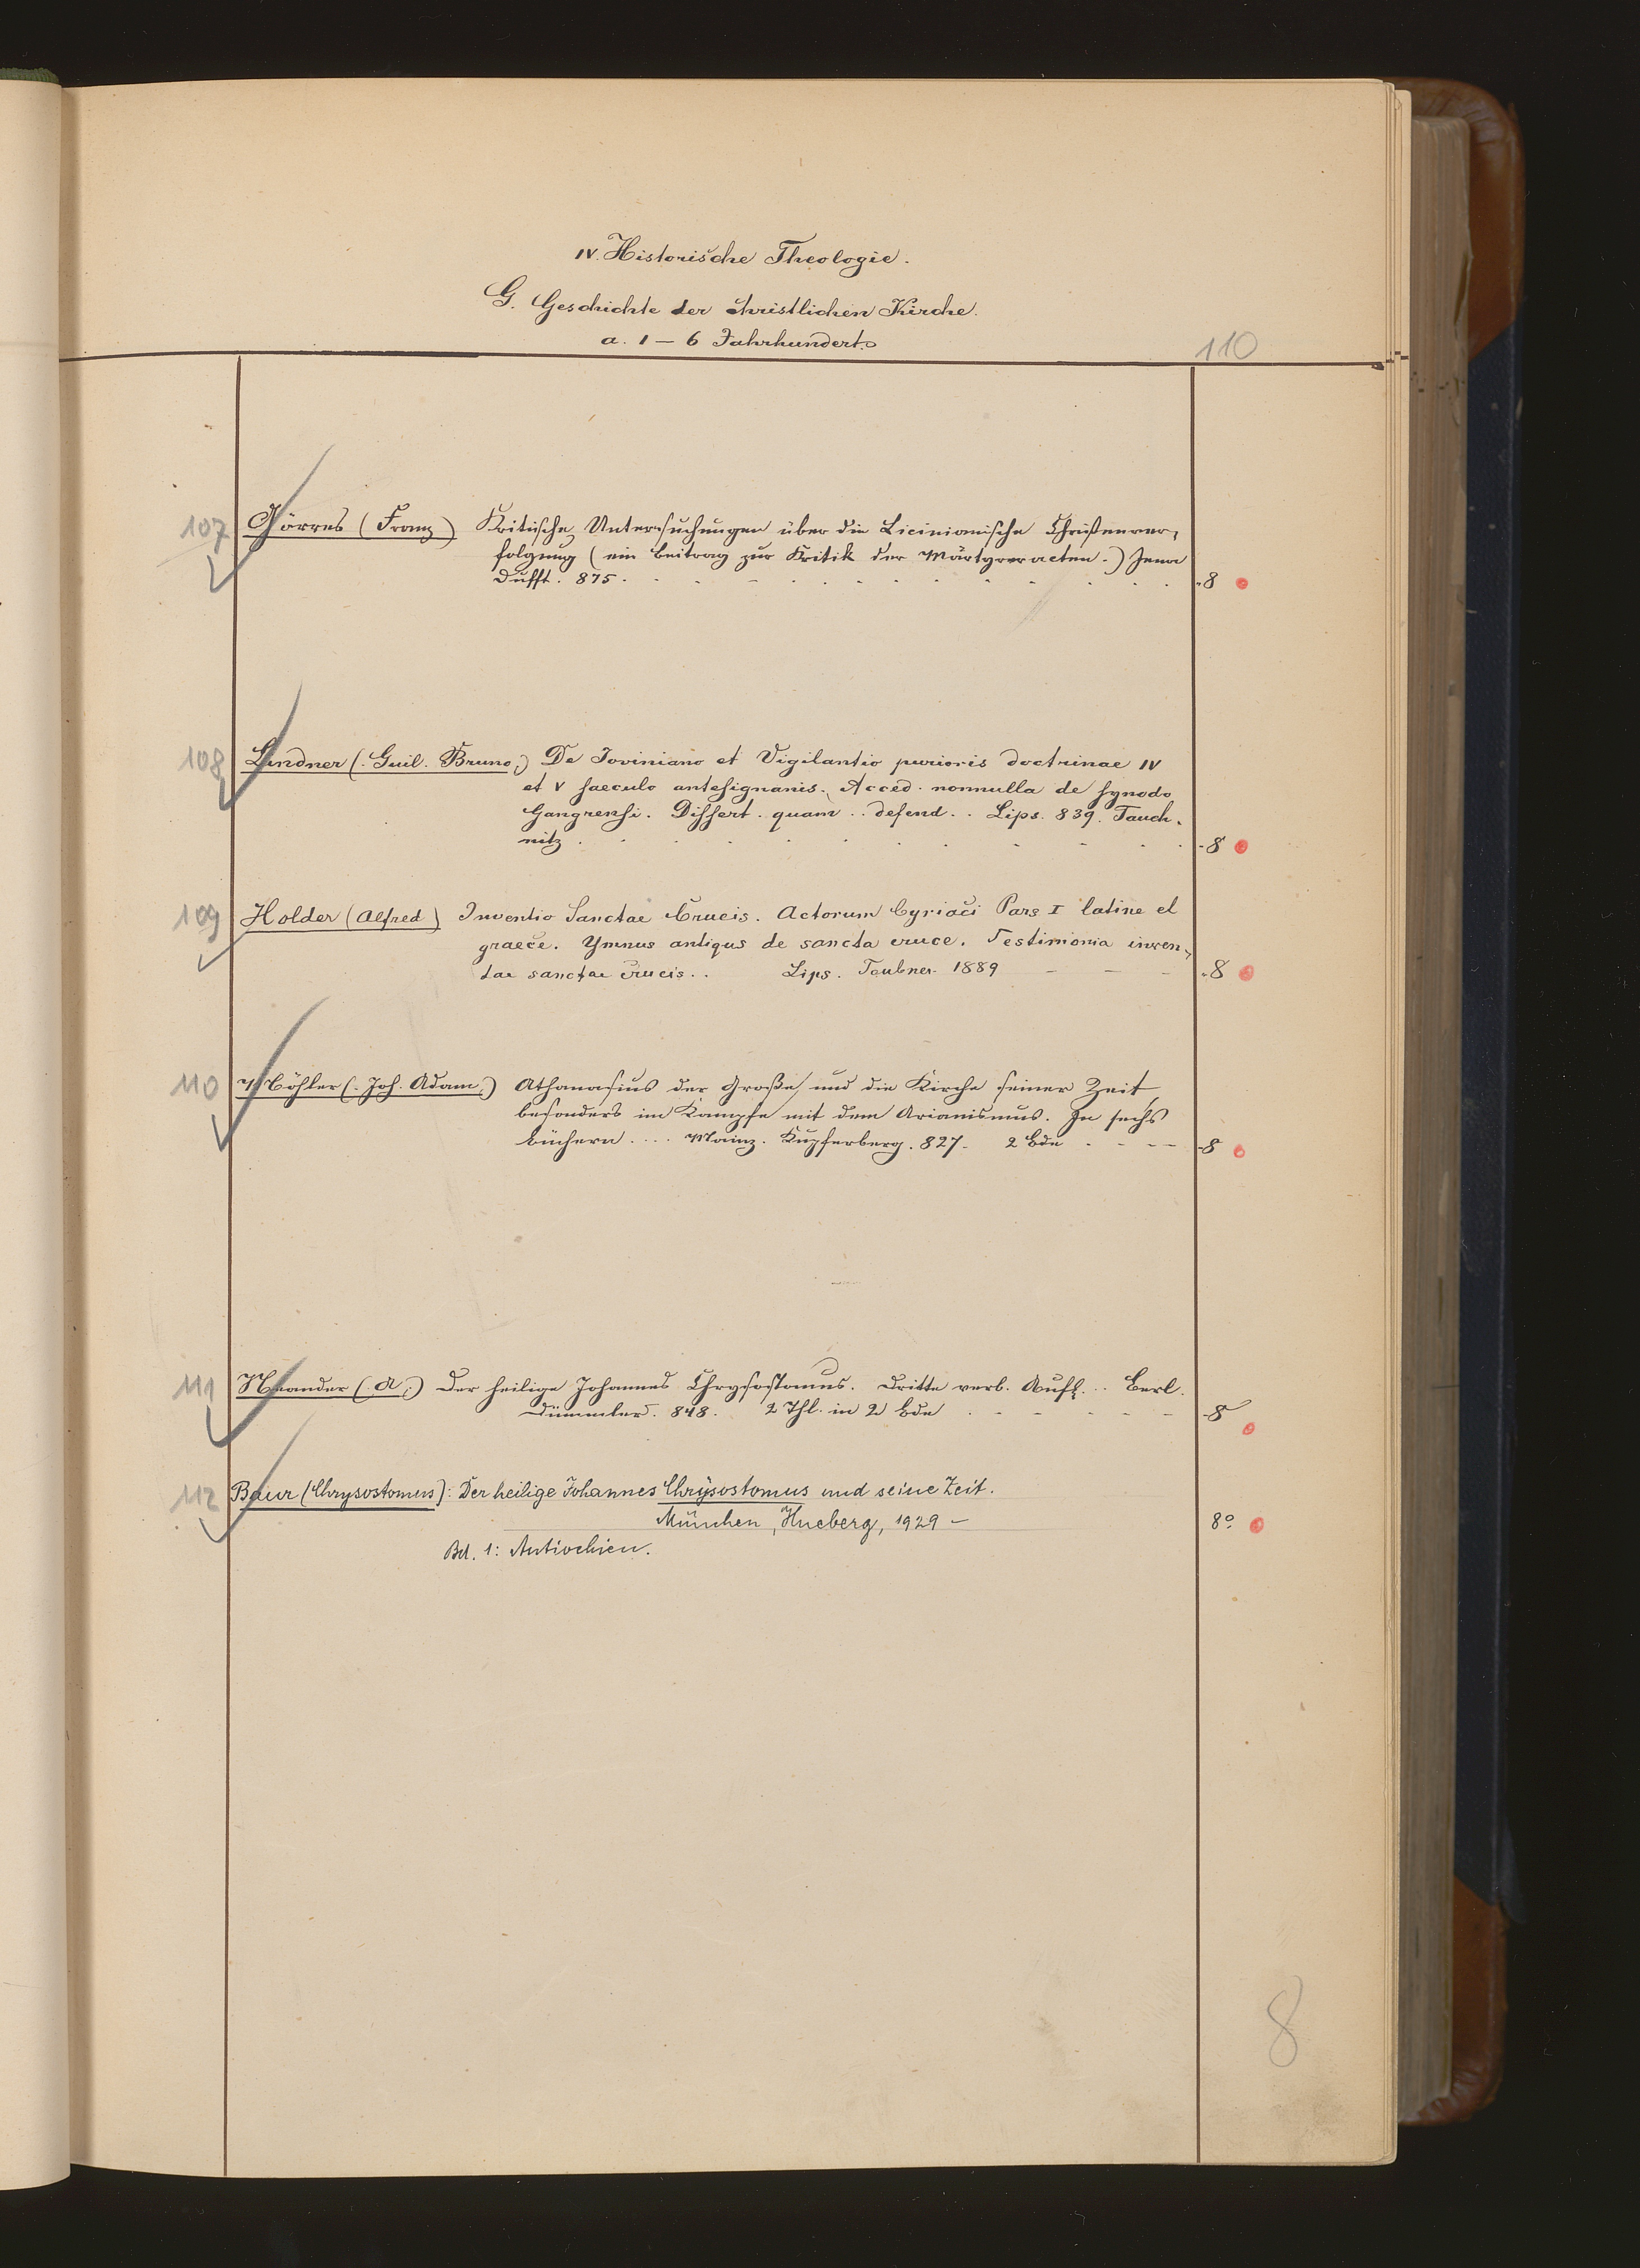 IV. Historische Theologie.
G. Geschichte der christlichen Kirche.
a. 1 — 6 Jahrhundert.
110
107 Görres (Franz) Kritische Untersuchungen über die Licinianische Christenver-
folgung (ein Beitrag zur Kritik der Märtyreracten.) Jena
Dufft. 875. 8
108 Lindner (. Guil. Bruno,) De Joviniano et Vigilantio purioris doctrinae IV
et V saeculo antesignanis. Acced. nonnulla de synodo
Gangrensi. Dissert. quam .. defend. . Lips. 839. Tauch-
nitz 8
109 Holder (Alfred) Inventio Sanctae Crucis. Actorum Cyriaci Pars I latine et
graece. Ymnus antiqus de sancta cruce. Testimonia inven-
tae sanctae crucis. . Lips. Teubner 1889 8
110 Möhler (. Joh. Adam,) Athanasius der Große und die Kirche seiner Zeit,
besonders im Kampfe mit dem Arianismus. In sechs
Büchern .... Mainz. Kupferberg. 827. 2 Bde 8
111 Neander (. A,) Der heilige Johannes Chrysostomus. Dritte verb. Aufl. .. Berl.
Dümmler. 848. 2 Thl. in 2 Bde 8
112 Baur (Chrysostomus): Der heilige Johannes Chrysostomus und seine Zeit.
München, Hueberg, 1929 – 8º
Bd. 1: Antiochien.
8